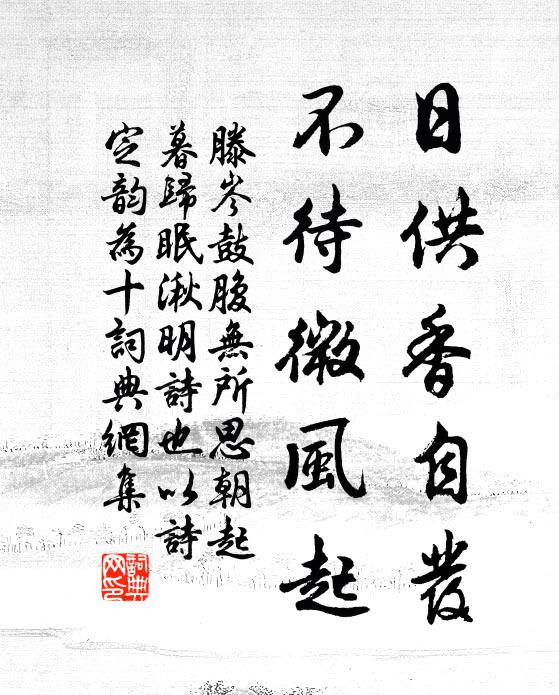 日供香自發
不待微風起
滕岑鼓腹無所思朝起
暮歸眠湫明詩也以詩
定韵為十詞典網集
詞典网印